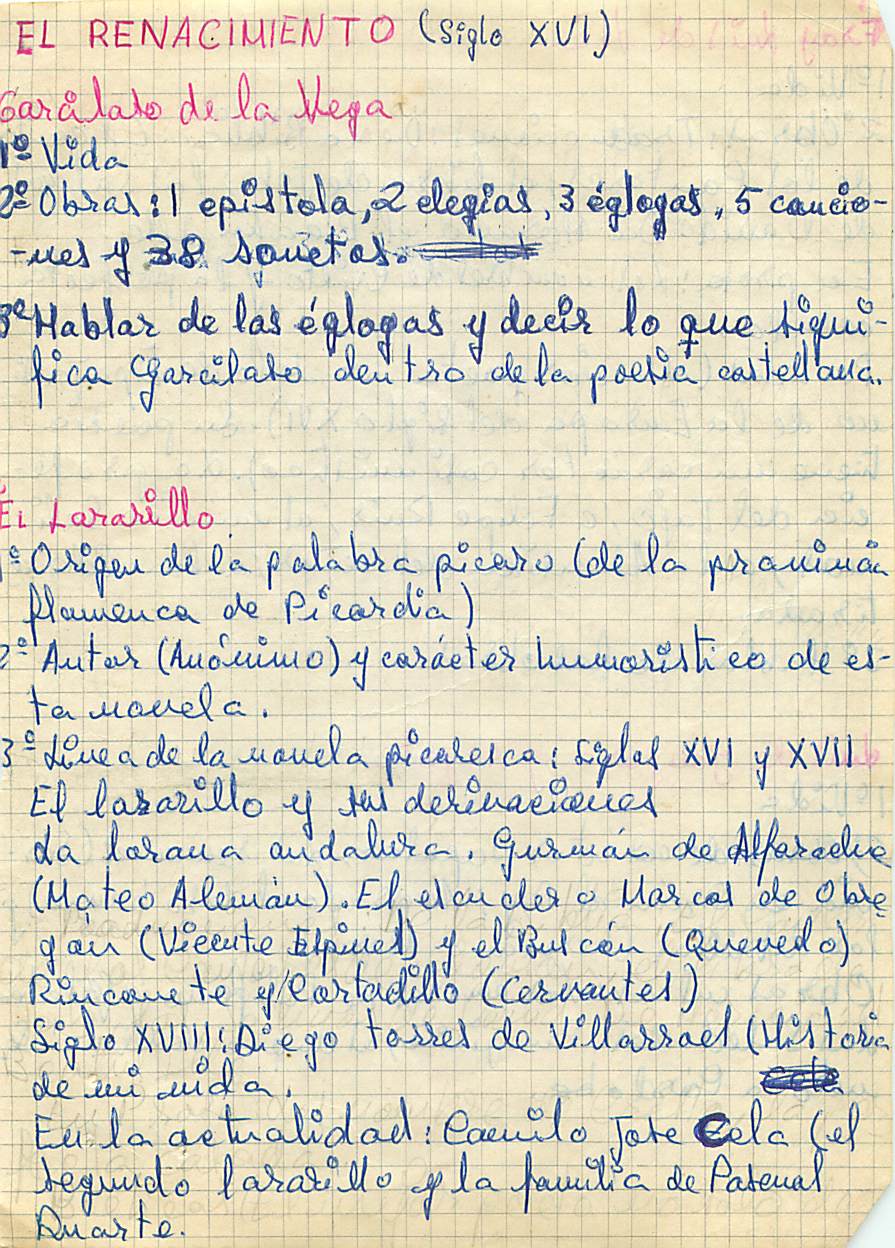 EL RENACIMIENTO (Siglo XVI)
Garcilaso de la Vega
1º Vida
2º Obras: 1 epístola, 2 elegías, 3 églogas, 5 cancio-
-nes y 38 sonetos.
3º Hablar de las églogas y decir lo que signi-
fica Garcilaso dentro de la poesía castellana.
El Lazarillo
1º Origen de la palabra pícaro (de la
flamenca de Picardía)
2º Autor (Anónimo) y carácter humorístico de es-
ta novela.
3º Línea de la novela picaresca: Siglos XVI y XVII
El lazarillo y sus derivaciones
La lozana andaluza. Guzmán de Alfarache
(Mateo Alemán). El escudero Marcos de Obre
gón (Vicente Espinel) y el Buscón (Quevedo)
Rinconete y Cortadillo (Cervantes)
Siglo XVIII: Diego torres de Villarrael (Historia
de mi vida.
En la actualidad: Camilo Jose Cela (el
segundo lazarillo y la familia de Pascual
Duarte.